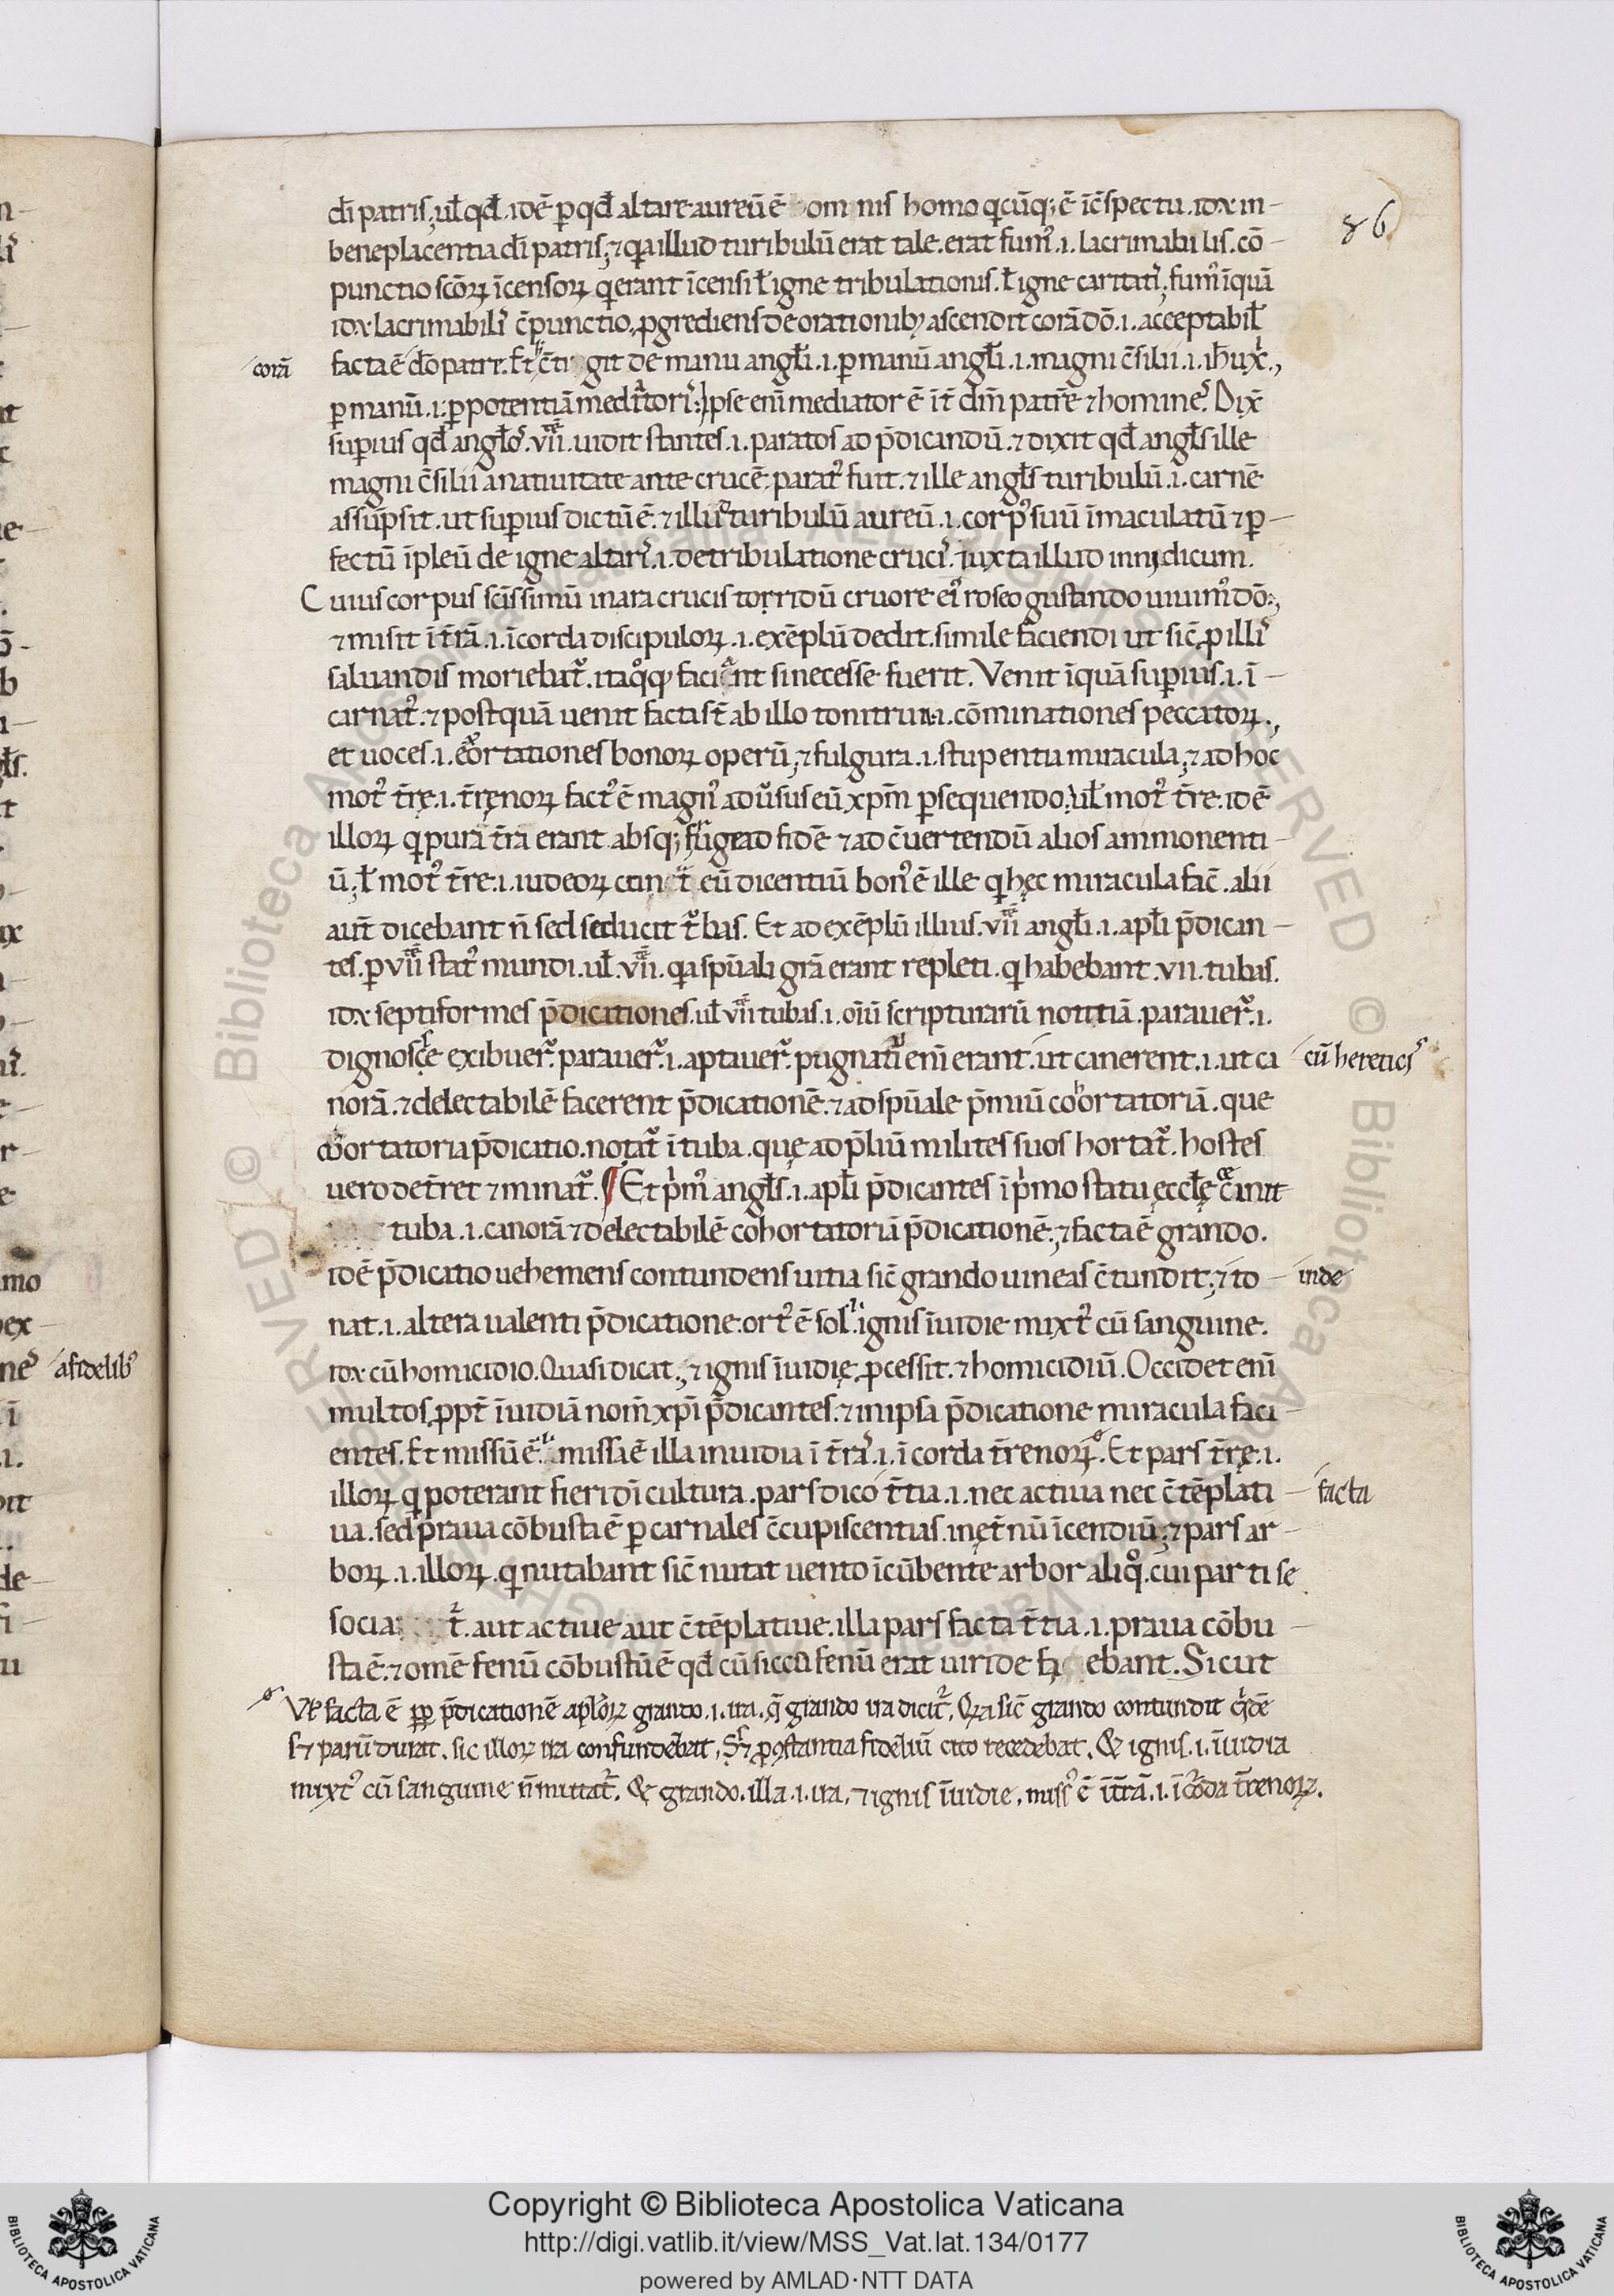 86
dī patris; ul̄ qđ. idē ꝑ qđ altare aureū ē omnis homo qͥcūq; ē īc̄spectu. idx in-
beneplacentia dī patris; ⁊ qa illud turibulū erat tale. erat fum᾿ .i. lacrimabilis. cō-
punctio scōꝝ īcensoꝝ qͥ erant īcensi ł igne tribulationis. ł igne caritatis; fum᾿ īquā
idx lacrimabilis c̄punctio, ꝓgrediens de orationibꝫ ascendit corā dō .i. acceptabil̄
corā
facta ē dō patre. Et hͨ c̄tigit de manu angl̄i .i. ꝑ manū angl̄i .i. magni c̄silii .i. ih̄u xͥ,
ꝑ manū .i. ꝑ potentiā mediatoris; Ipse enī mediator ē īt̄ dm̄ patrē ⁊ homines. Dix̄
suꝑius qđ angl̄os .vii. uidit stantes .i. paratos ad p̄dicandū. ⁊ dixit qđ angl̄s ille
magni c̄silii a natiuitate ante crucē parat᾿ fuit. ⁊ ille angl̄s turibulū .i. carnē
assūpsit. ut suꝑius dictū ē. ⁊ illud turibulū aureū .i. corp᾿ suū īmaculatū ⁊ ꝑ-
fectū īpleū de igne altaris .i. de tribulatione crucis. iuxta illud innidicum.
Cuius corpus sc̄issimū in ara crucis torridū cruore ei᾿ roseo gustando uiuim᾿ dō;
⁊ misit ī t̄rā .i. ī corda discipuloꝝ .i. exēplū dedit. simile faciendi ut sic̄ ꝓ illis
saluandis moriebat᾿. ita qͦqꝫ faciant si necesse fuerit. Venit īquā suꝑius .i. ī-
carnat᾿. ⁊ postquā uenit facta st̄ ab illo tonitrua .i. cōminationes peccatoꝝ.,
et uoces .i. exortationes bonoꝝ operū; ⁊ fulgura .i. stupentia miracula; ⁊ ad hoc
mot᾿ t̄rę .i. t̄ręnoꝝ fact᾿ ē magn᾿ aduersus eū xp̄m ꝑsequendo; ul̄ mot᾿ t̄re. id ē
illoꝝ qͥ pura t̄ra erant absq; fruge ad fidē ⁊ ad c̄uertendū alios ammonenti-
ū; ł mot᾿ t̄re .i. iudeoꝝ eū dicentiū bon᾿ ē ille qͥ hęc miracula fac̄. alii
aut̄ dicebant n̄ sed seducit t᾿bas. Et ad exēplū illius .vii. angl̄i .i. apl̄i p̄dican-
tes. ꝑ vii stat᾿ mundi. ul̄ .vii. qa spūali grā erant repleti. qͥ habebant .vii. tubas.
idx septiformes p̄dicationes. ul̄ vii tubas .i. oīū scripturarū notitiā. parauer᾿ .i.
dignosc̄e exibuer᾿. parauer᾿ .i. aptauer᾿. pugnaturi enī erant. ut canerent .i. ut ca
cū hereticis
norā. ⁊ delectabilē facerent p̄dicationē. ⁊ ad spūale p̄miū cohortatoriā. que
cohortatoria p̄dicatio. notat᾿ ī tuba. quę ad p̄liū milites suos hortat᾿. hostes
uero det̄ret ⁊ minat᾿. ¶ Et pͥm᾿ angl̄s .i. apl̄i p̄dicantes ī pͥmo statu ęccl̄ę cecinit
tuba .i. canorā ⁊ delectabilē cohortatoriā p̄dicationē; ⁊ facta ē grando.
idē p̄dicatio uehemens contundens uitia sic̄ grando uineas c̄tundit; ⁊ to-
inde
nat .i. altera ualenti p̄dicatione. ort᾿ ē sol. ignis īuidie mixt᾿ cū sanguine.
idx cū homicidio. Quasi dicat; ⁊ ignis īuidię ꝓcessit. ⁊ homicidiū. Occidet enī
multos, ꝓpt̄ īuidiā nom̄ xp̄i p̄dicantes. ⁊ in ipsa p̄dicatione miracula faci-
entes. Et missū ē. missa ē illa inuidia ī t̄rā .i. ī corda t̄renoꝝ. Et pars t̄rę .i.
illoꝝ qͥ poterant fieri dī cultura. pars dico t̄tia .i. nec actiua nec c̄tēplati-
facta
ua. sed praua cōbusta ē ꝑ carnales c̄cupiscentias. in ęt̄nū īcendiū; ⁊ pars ar-
boꝝ .i. illoꝝ. qͥ nutabant sic̄ nutat uento īcūbente arbor aliqͦ. cui parti se
socia t᾿. aut actiue aut c̄tēplatiue. illa pars facta t̄tia .i. praua cōbu-
sta ē. ⁊ omē fenū cōbustū ē qđ cū siccū fenū erat uiride ebant. Sicut
Vł facta ē ꝓp p̄dicationē apl̄oꝝ grando .i. ira. q̄ grando ira dicit᾿. Qͥa sic̄ grando contundit qͥdē
s; ⁊ parū durat. sic illoꝝ ira confundebat, S; ⁊ ꝑ ꝯstantia fideliū cito recedebat. & ignis .i. īuidia
mixt᾿ cū sanguine n̄ mutat᾿. & grando. illa .i. ira, ⁊ ignis īuidie, miss᾿ ē ī t̄rā .i. ī corda t̄renoꝝ.
a fidelib᾿
Copyright © Biblioteca Apostolica Vaticana
http://digi.vatlib.it/view/MSS_Vat.lat.134/0177
powered by AMLAD·NTT DATA
BIBLIOTECA APOSTOLICA VATICANA
BIBLIOTECA APOSTOLICA VATICANA